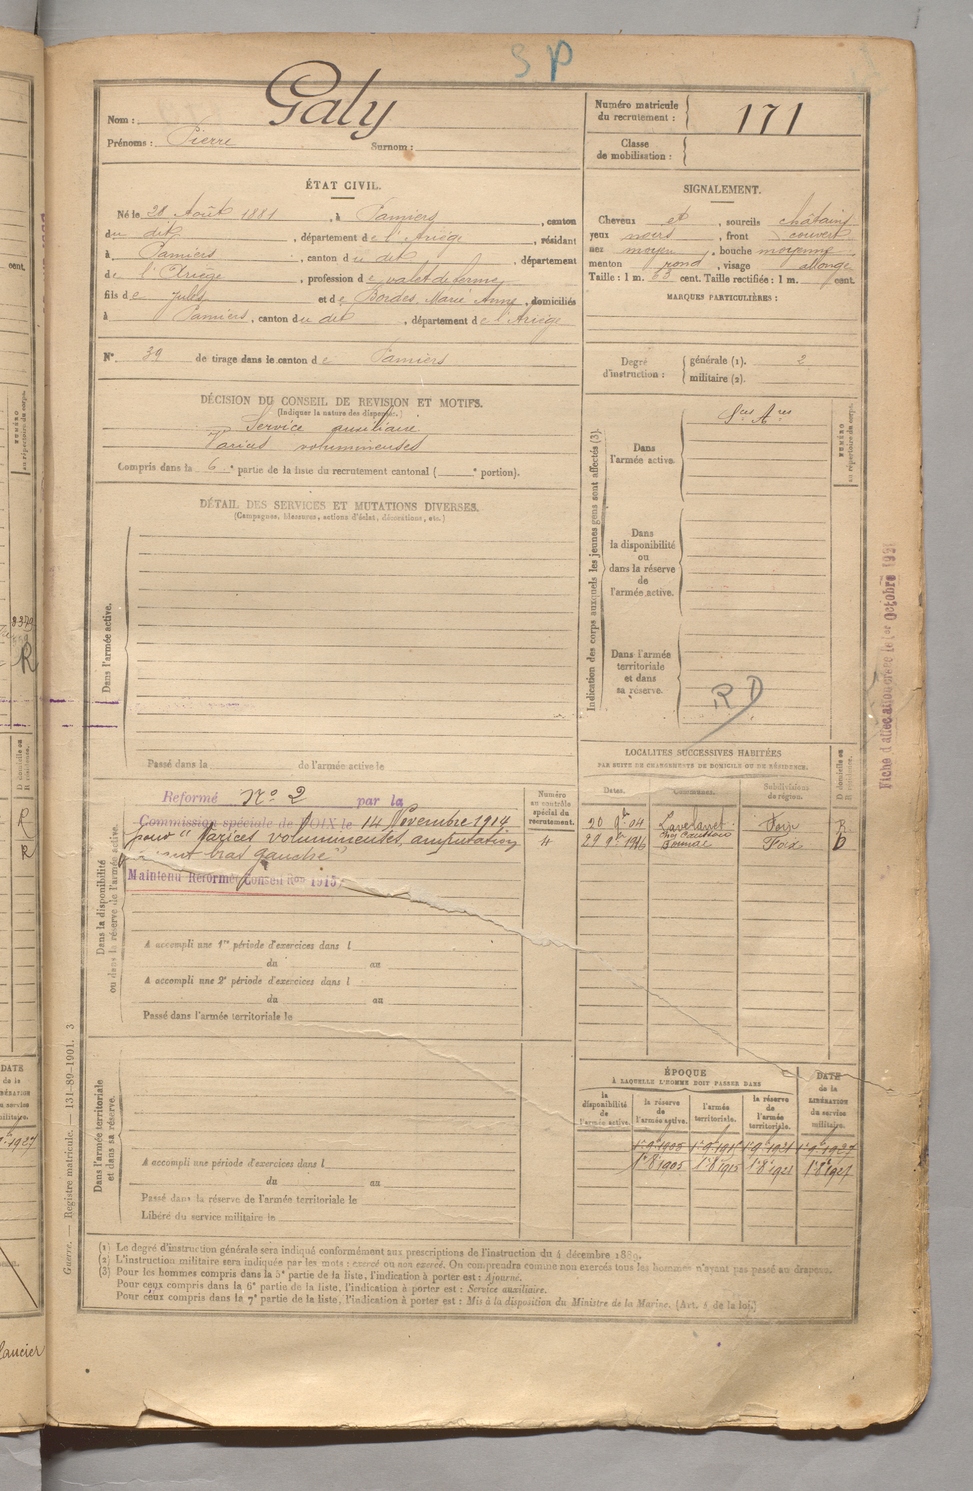 SP
Nom : Galy
Prénoms : Pierre Surnom :
Numéro matricule du recrutement : 171
Classe de mobilisation :
ÉTAT CIVIL.
Né le 28 Août 1881, à Pamiers, canton
du dit, département de l'Ariège, résidant
à Pamiers, canton du dit, département
de l'Ariège, profession de valet de ferme
fils de Jules et de Bordes, Marie Anne, domiciliés
à Pamiers, canton du dit, département de l'Ariège
N° 39 de tirage dans le canton de Pamiers
SIGNALEMENT.
Cheveux et, sourcils châtains
yeux noirs, front couvert
nez moyen, bouche moyenne
menton rond, visage allongé
Taille : 1 m. 63 cent. Taille rectifiée : 1 m. cent.
MARQUES PARTICULIÈRES :
Degré d'instruction : générale (1). 2
militaire (2).
DÉCISION DU CONSEIL DE REVISION ET MOTIFS.
(Indiquer la nature des dispenses.)
Service auxiliaire
Varices volumineuses
Compris dans la 6e partie de la liste du recrutement cantonal ( e portion).
DÉTAIL DES SERVICES ET MUTATIONS DIVERSES.
(Campagnes, blessures, actions d'éclat, décorations, etc.)
Dans l'armée active.
Passé dans la de l'armée active le
Indication des corps auxquels les jeunes gens sont affectés (3).
Dans l'armée active.
Sces Ares
NUMÉRO au répertoire du corps.
Dans la disponibilité ou dans la réserve de l'armée active.
Dans l'armée territoriale et dans sa réserve.
RD
Fiche d'allocation créée le 1er Octobre 1921
LOCALITÉS SUCCESSIVES HABITÉES
PAR SUITE DE CHANGEMENTS DE DOMICILE OU DE RÉSIDENCE.
Dates. Communes. Subdivisions de région. D domicile ou R résidence.
20 Xbre 04 Lavelanet Foix R
Bonnac Foix D
Dans la disponibilité ou dans la réserve de l'armée active.
Numéro au contrôle spécial du recrutement.
Reformé N° 2 par la
Commission spéciale de FOIX le 14 Novembre 1914
pour "Varices volumineuses, amputation
avant bras gauche"
Maintenu Réformé Conseil Ron 1915
A accompli une 1re période d'exercices dans l
du au
A accompli une 2e période d'exercices dans l
du au
Passé dans l'armée territoriale le
Dans l'armée territoriale et dans sa réserve.
A accompli une période d'exercices dans l
du au
Passé dans la réserve de l'armée territoriale le
Libéré du service militaire le
ÉPOQUE
À LAQUELLE L'HOMME DOIT PASSER DANS
la disponibilité de l'armée active.
la réserve de l'armée active.
l'armée territoriale.
la réserve de l'armée territoriale.
DATE de la LIBÉRATION du service militaire.
1er 9bre 1905 1er 9bre 1915 1er 9bre 1921 1er 9bre 1927
1er 8bre 1905 1er 8bre 1915 1er 8bre 1921 1er 8bre 1927
(1) Le degré d'instruction générale sera indiqué conformément aux prescriptions de l'instruction du 4 décembre 1889.
(2) L'instruction militaire sera indiquée par les mots : exercé ou non exercé. On comprendra comme non exercés tous les hommes n'ayant pas passé au drapeau.
(3) Pour les hommes compris dans la 5e partie de la liste, l'indication à porter est : Ajourné.
Pour ceux compris dans la 6e partie de la liste, l'indication à porter est : Service auxiliaire.
Pour ceux compris dans la 7e partie de la liste, l'indication à porter est : Mis à la disposition du Ministre de la Marine. (Art. 4 de la loi.)
Guerre. — Registre matricule. — 131-89-1901. 3